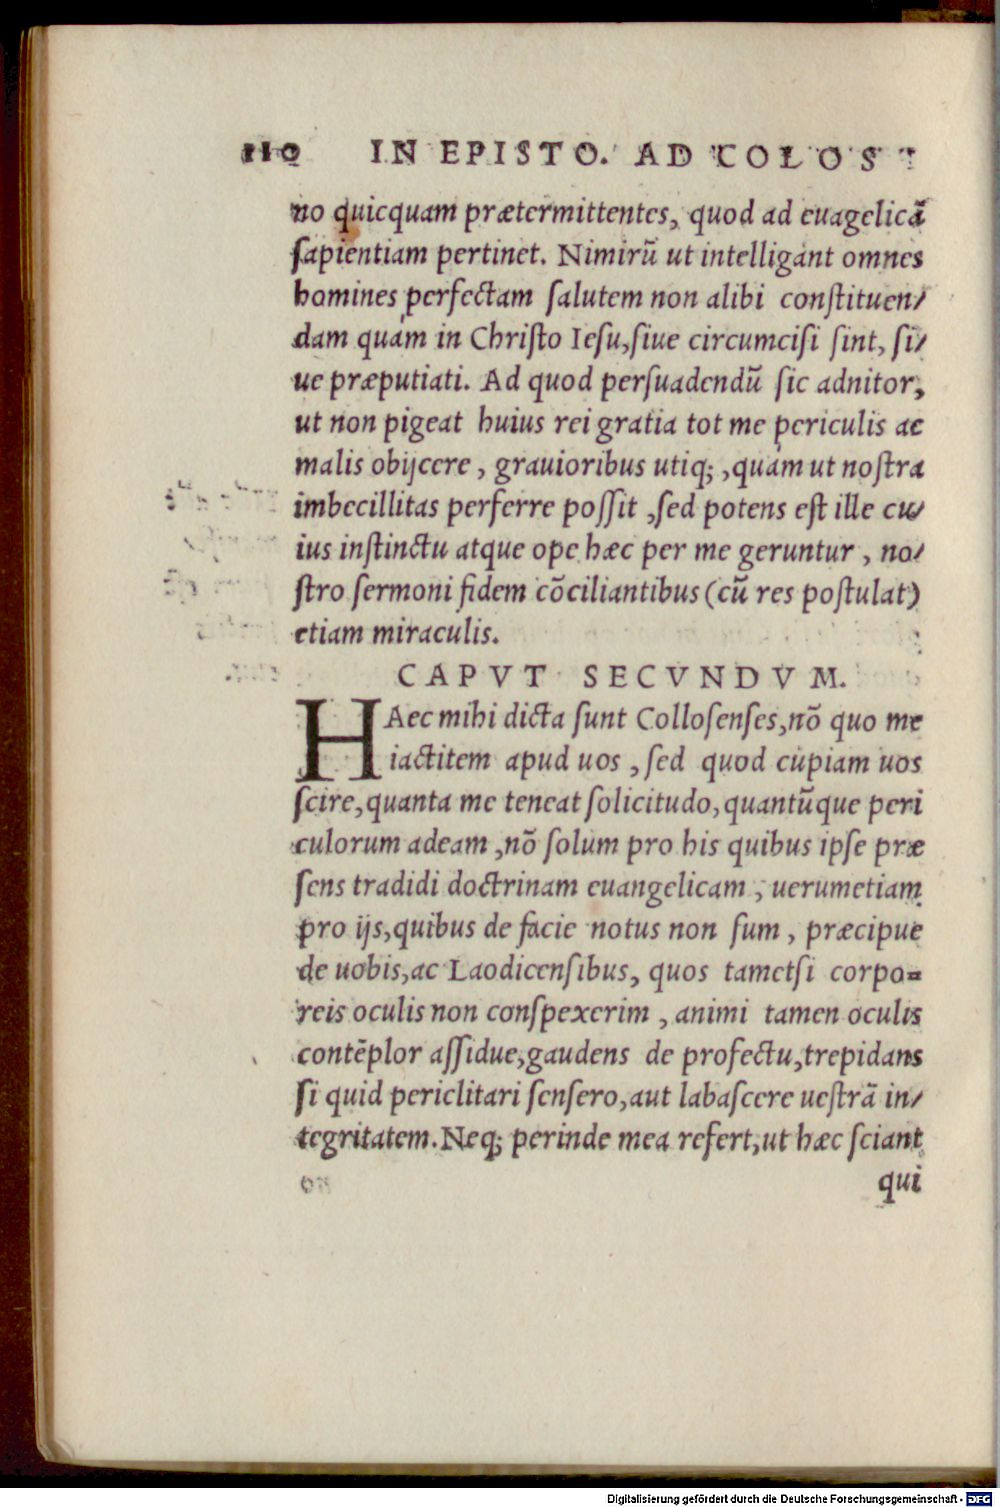 110 IN EPISTO. AD COLOS
no quicquam prætermittentes, quod ad euagelicā
ſapientiam pertinet. Nimirū ut intelligant omnes
homines perfectam ſalutem non alibi conſtituen/
dam quàm in Chriſto Ieſu,ſiue circumciſi ſint, ſi/
ue præputiati. Ad quod perſuadendū ſic adnitor,
ut non pigeat huius rei gratia tot me periculis ac
malis obijcere , grauioribus utiq; ,quàm ut noſtra
imbecillitas perferre poſſit ,ſed potens eſt ille cu/
ius inſtinctu atque ope hæc per me geruntur , no/
ſtro ſermoni fidem cōciliantibus (cū res poſtulat)
etiam miraculis.
CAPVT SECVNDVM.
HAec mihi dicta ſunt Colloſenſes,nō quo me
iactitem apud uos , ſed quod cupiam uos
ſcire,quanta me teneat ſolicitudo,quantūque peri
culorum adeam ,nō ſolum pro his quibus ipſe præ
ſens tradidi doctrinam euangelicam , uerumetiam
pro ijs,quibus de facie notus non ſum , præcipue
de uobis,ac Laodicenſibus, quos tametſi corpo=
reis oculis non conſpexerim , animi tamen oculis
contēplor aſſidue,gaudens de profectu,trepidans
ſi quid periclitari ſenſero,aut labaſcere ueſtrā in/
tegritatem. Neq; perinde mea refert,ut hæc ſciant
qui
Digitalisierung gefördert durch die Deutsche Forschungsgemeinschaft - DFG